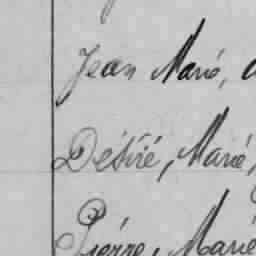 Jean Marie,
Désiré, Marie,
Pierre, Marie